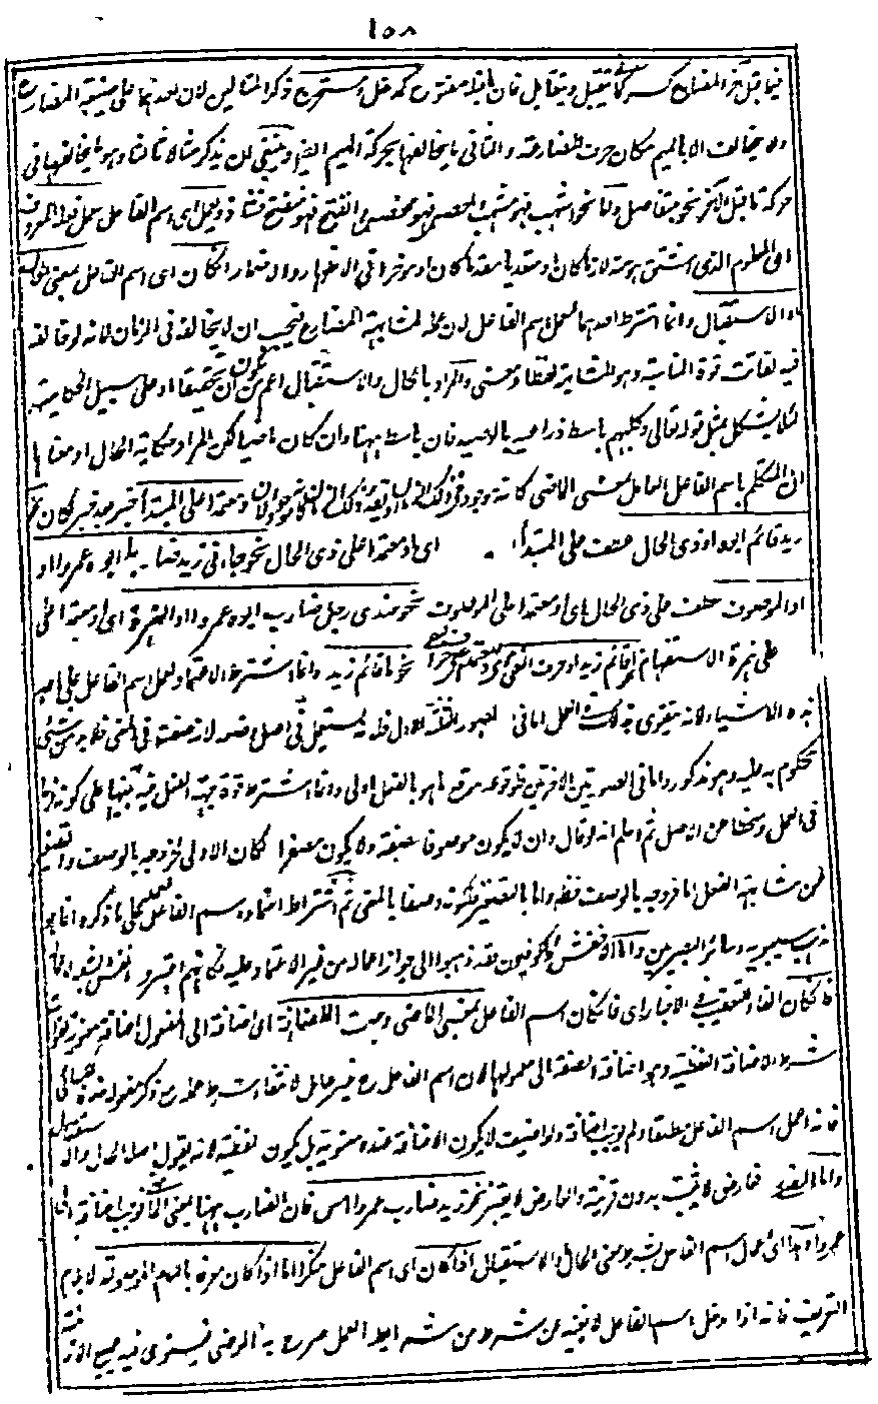 ١٥٨
فيما قبل آخر المضارع كسر كما يتقبل ويتقابل فان ما قبلها مفتوح كمدخل ومستخرج ذكر المثالين لان احدهما على صيغة المضارع
ولا يخالف الا بالميم مكان حرف المضارعة والثاني ما يخالفها بحركة الميم ايضا وينبغي ان يذكر مثالا ثالثا وهو ما يخالفها في
حركة ما قبل الآخر نحو متفاصل واما نحو اشهب فهو مشهب واحصن فهو محصن والفج فهو مفلج فشاذ ويعمل اي اسم الفاعل عمل فعله المعروف
اي المعلوم الذي اشتق منه لازما كان او متعديا مقدما كان او مؤخرا في الاظهار والاضمار ان كان اي اسم الفاعل بمعنى الحال
او الاستقبال وانما اشترط احدهما لعمل اسم الفاعل لان عمله لمشابهة المضارع فيجب ان لا يخالفه في الزمان لانه لو خالفه
فيه لفاتت قوة المشابهة وهو المشابهة لفظا ومعنى والمراد بالحال والاستقبال اعم من ان يكون تحقيقا او على سبيل الحكاية
لئلا يشكل بمثل قوله تعالى وكلبهم باسط ذراعيه بالوصيد فان باسط ههنا وان كان ماضيا لكن المراد حكاية الحال ومعناها
ان المتكلم باسم الفاعل العامل بمعنى الماضي كانه موجود في ذلك الزمان ومعتمدا على المبتدأ خبر بعد خبر لكان نحو
زيد قائم ابوه او ذي الحال عطف على المبتدأ اي او معتمدا على ذي الحال نحو جاءني زيد ضاربا ابوه عمروا او
او الموصوف عطف على ذي الحال اي او معتمدا على الموصوف نحو عندي رجل ضارب ابوه عمروا او الهمزة اي او معتمدا على
على همزة الاستفهام نحو اقائم زيد او حرف النفي نحو ما قائم زيد وانما اشترط الاعتماد لعمل اسم الفاعل على احد
هذه الاشياء لانه يتقوى بذلك على العمل اما في الصور الثلثة الاول فلانه يستعمل في اصل وضعه لانه صفة في المعنى فلا بد من شيء
محكوم به عليه وهو مذكور واما في الصورتين الاخيرتين فلوقوعه موقع ما هو بالفعل اولى وانما اشترط قوة جهة الفعل فيه تنبيها على كونه فرعا
في العمل ومنحطا عن الاصل ثم اعلم انه لو قال وان لا يكون موصوفا بصفة ولا يكون مصغرا لكان الاولى لخروجه بالوصف والتصغير
عن مشابهة الفعل اما خروجه بالوصف فظ واما بالتصغير فلكونه وصفا بالمعنى ثم اشتراط اعتماد اسم الفاعل على ما ذكر انما هو
مذهب سيبويه وسائر البصريين واما الاخفش والكوفيون فقد ذهبوا الى جواز اعماله من غير الاعتماد عليه فكانهم اعتبروا نفس المشابهة
فان كان الفاء للتعقيب في الاخبار اي فان كان اسم الفاعل بمعنى الماضي وجبت الاضافة اي اضافة الى المفعول اضافة معنوية لفوات
شرط الاضافة اللفظية وهو اضافة الصفة الى معمولها لان اسم الفاعل ح غير عامل لانتفاء شرط عمله ح ذكر مفعوله خلافا للكسائي
فانه اعمل اسم الفاعل مطلقا ولم يوجب اضافة ولو اضيفت لا يكون الاضافة عنده معنوية بل يكون لفظية لانه يقول اصله الحال والاستقبال
واما المضي فعارض لا يثبت بدون قرينة والعارض لا يعتبر نحو زيد ضارب عمرو امس فان الضارب ههنا بمعنى الماضي فوجب اضافته الى
عمرو وهذا اي عمل اسم الفاعل بشرط معنى الحال والاستقبال اذا كان اي اسم الفاعل منكرا اما اذا كان معرفا باللام الموصولة لا بلام
التعريف فانه اذا دخل اسم الفاعل لا يغنيه عن شرط من شرايط العمل صرح به الرضي فيستوي فيه جميع الازمنة